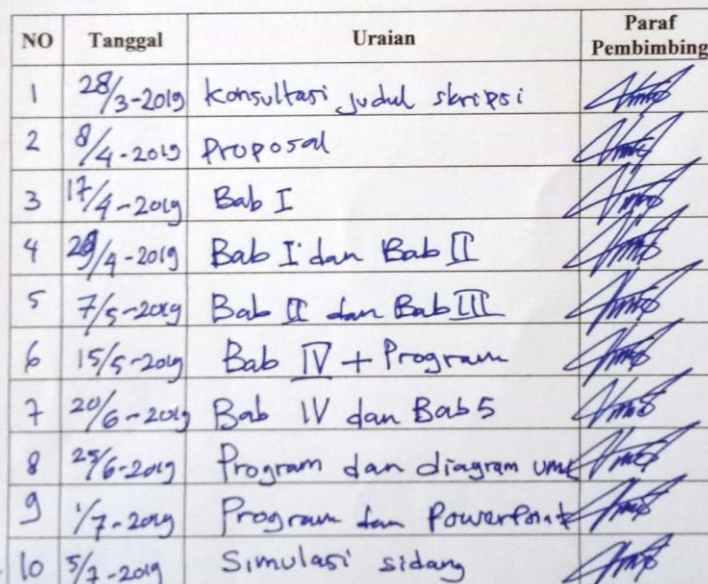 NO Tanggal Uraian Paraf Pembimbing
1 28/3-2019 Konsultasi judul skripsi
2 8/4-2019 Proposal
3 17/4-2019 Bab I
4 /4-2019 Bab I dan Bab II
5 7/5-2019 Bab II dan Bab III
6 15/5-2019 Bab IV + Program
7 20/6-2019 Bab IV dan Bab 5
8 25/6-2019 Program dan diagram uml
9 1/7-2019 Program dan PowerPoint
10 5/7-2019 Simulasi sidang